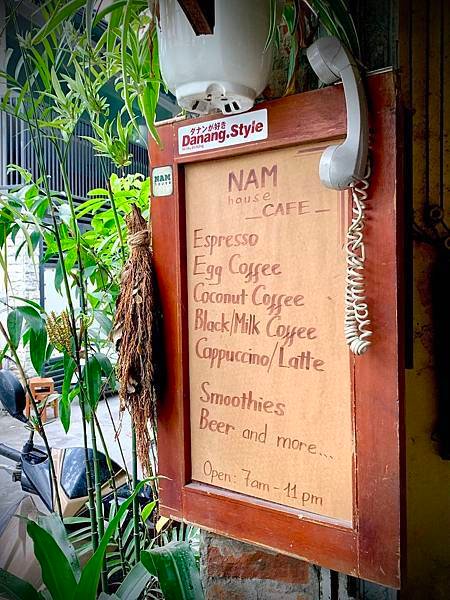 ダナンが好き
Danang.Style
NAM
house
NAM
house
- CAFE -
Espresso
Egg Coffee
Coconut Coffee
Black/Milk Coffee
Cappuccino/Latte
Smoothies
Beer and more...
Open: 7am - 11 pm